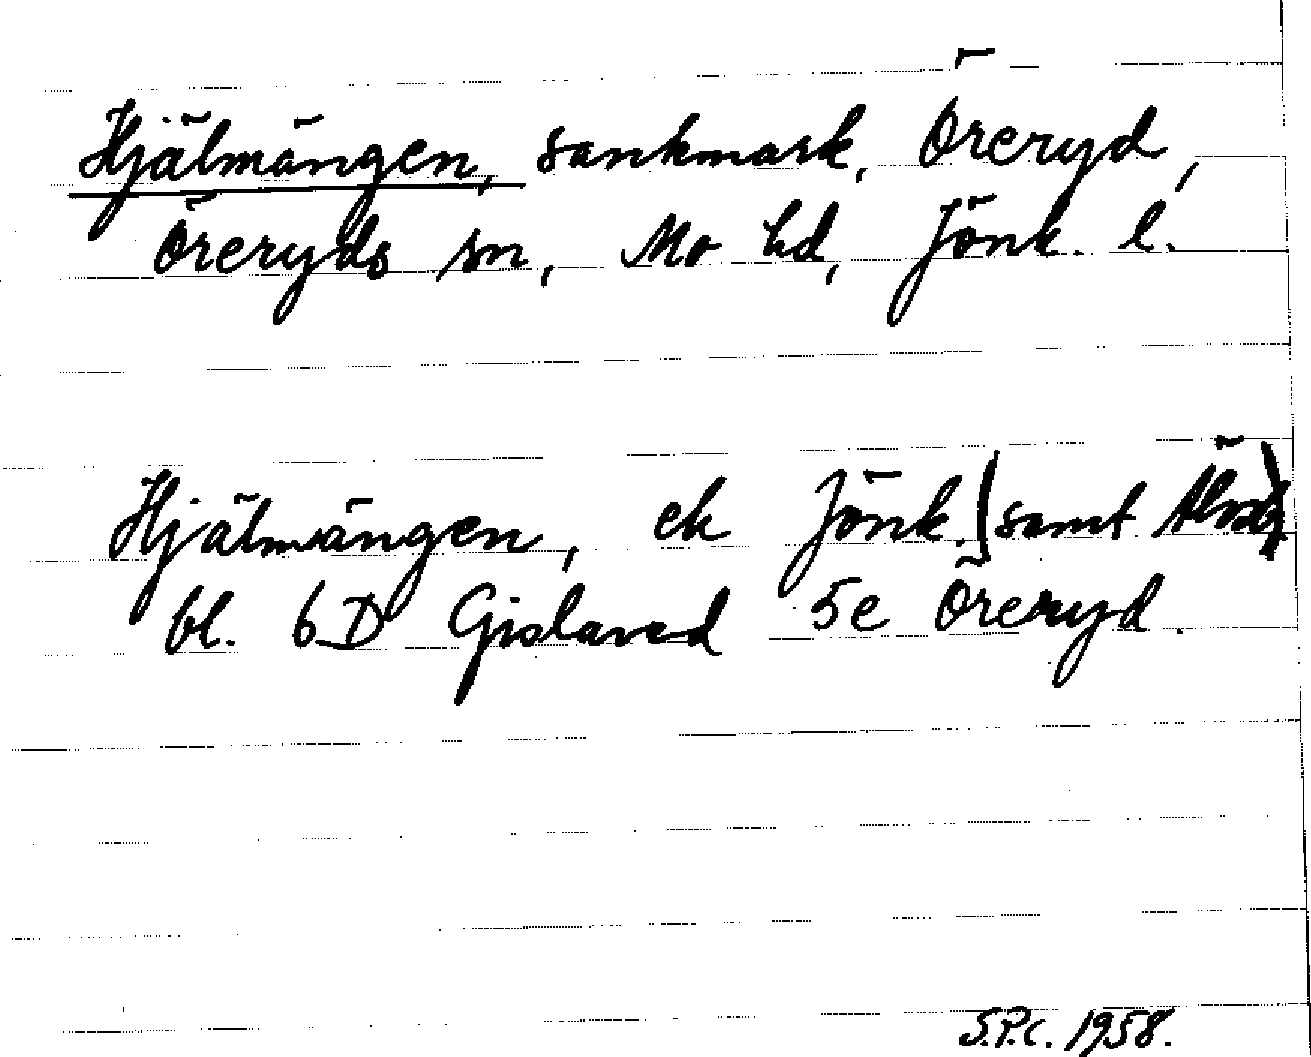 Hjälmängen, sankmark, Öreryd,
Öreryds sn, Mo hd, Jönk. l.
Hjälmängen, ek Jönk. (samt Älvsb)
bl. 6D Gislaved 5e Öreryd.
S.P.C. 1958.